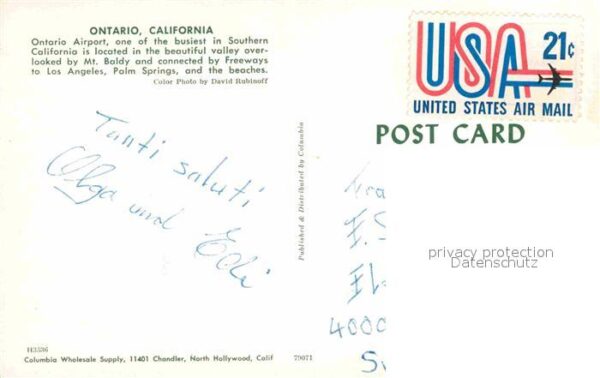 ONTARIO, CALIFORNIA
Ontario Airport, one of the busiest in Southern
California is located in the beautiful valley over-
looked by Mt. Baldy and connected by Freeways
to Los Angeles, Palm Springs, and the beaches.
Color Photo by David Rubinoff
USA 21¢
UNITED STATES AIR MAIL
POST CARD
Tanti saluti
Olga und Edi
Published & Distributed by Columbia
privacy protection
Datenschutz
4000
H3536
Columbia Wholesale Supply, 11401 Chandler, North Hollywood, Calif
79071